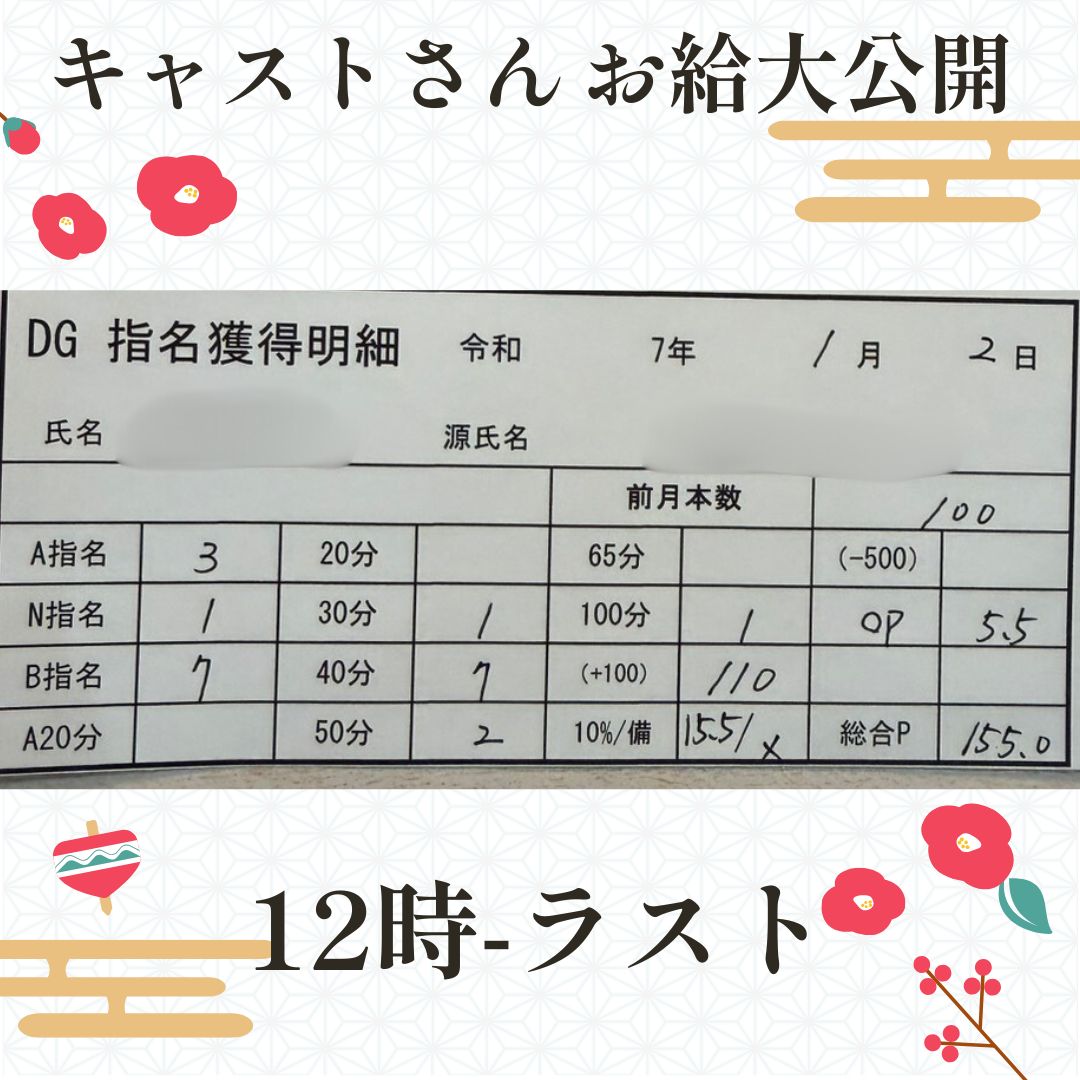 キャストさん お給大公開
DG 指名獲得明細 令和 7年 1月 2日
氏名 源氏名
前月本数 100
A指名 3 20分 65分 (-500)
N指名 1 30分 1 100分 1 OP 5.5
B指名 7 40分 7 (+100) 110
A20分 50分 2 10%/備 15.5/x 総合P 155.0
12時-ラスト